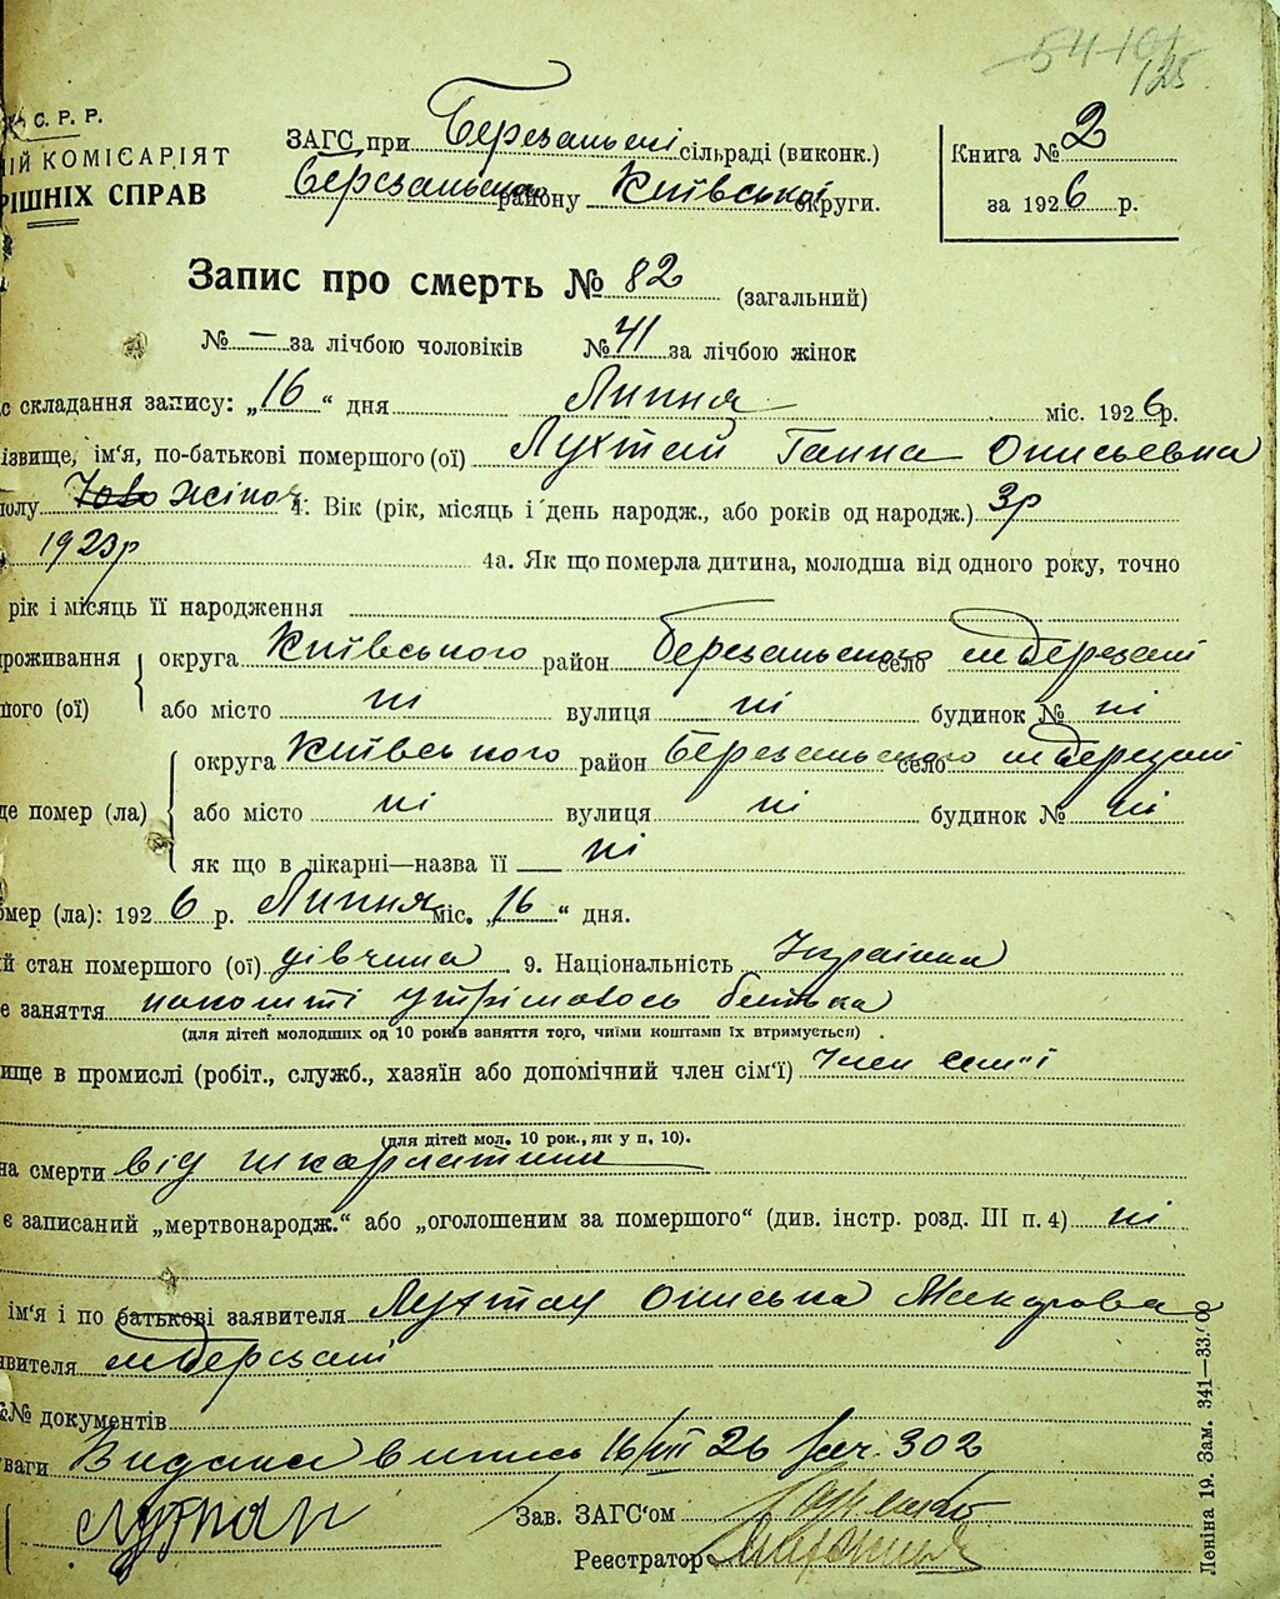 5410
125
С. Р. Р.
ЗАГС при Березанські сільраді (виконк.)
Книга № 2
ІЙ КОМІСАРІЯТ
Березанського району Київської округи.
за 1926 р.
РІШНІХ СПРАВ
Запис про смерть № 82 (загальний)
№ — за лічбою чоловіків № 41 за лічбою жінок
с складання запису: „16“ дня Липня міс. 1926 р.
ізвище, ім'я, по-батькові помершого (ої) Лухтай Ганна Онисьевна
полу жіноч 4. Вік (рік, місяць і день народж., або років од народж.) 3р
1923р 4а. Як що померла дитина, молодша від одного року, точно
рік і місяць її народження
роживання округа Київського район Березанського село м Березані
ного (ої) або місто ні вулиця ні будинок № ні
округа Київського район Березанського село м Березані
де помер (ла) або місто ні вулиця ні будинок № ні
як що в лікарні—назва її ні
омер (ла): 1926 р. Липня міс. „16“ дня.
й стан помершого (ої) дівчина 9. Національність Українка
е заняття на кошті утрімалось батька
(для дітей молодших од 10 років заняття того, чиїми коштами їх втримується)
ище в промислі (робіт., служб., хазяїн або допомічний член сім'ї) Член сем"ї
(для дітей мол. 10 рок., як у п. 10).
на смерти від шкарлатини
є записаний „мертвонародж.“ або „оголошеним за помершого“ (див. інстр. розд. III п. 4) ні
ім'я і по батькові заявителя Лухтай Ониська Макарова
явителя м Березані
№№ документів
ваги Видана випись 16/VII 26 за ч. 302
Зав. ЗАГС'ом
Реєстратор
Леніна 19. Зам. 341—33.